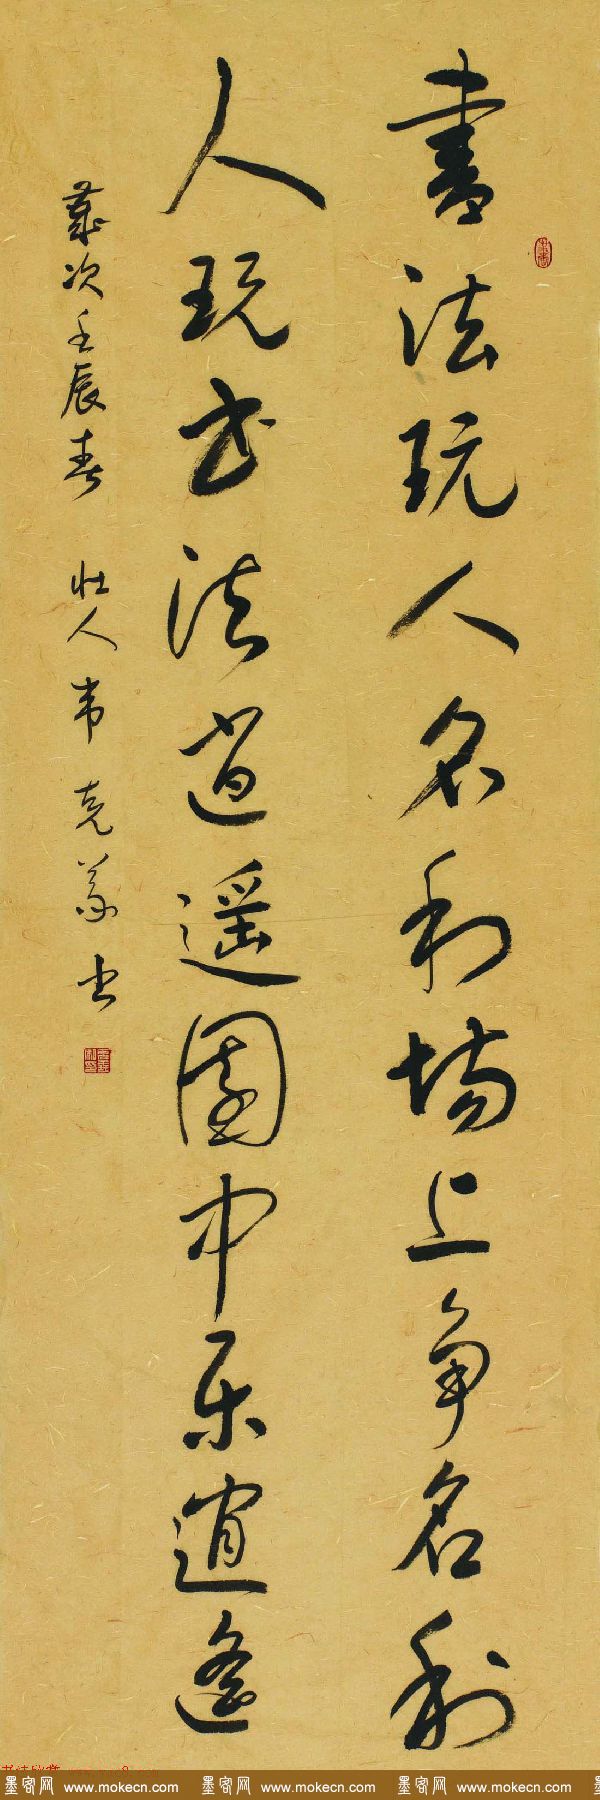 書法玩人名利场上争名利
人玩书法逍遥园中乐逍遥
歲次壬辰春 壮人韦克义书
墨客网 www.mokecn.com 墨客网 www.mokecn.com 墨客网 www.mokecn.com